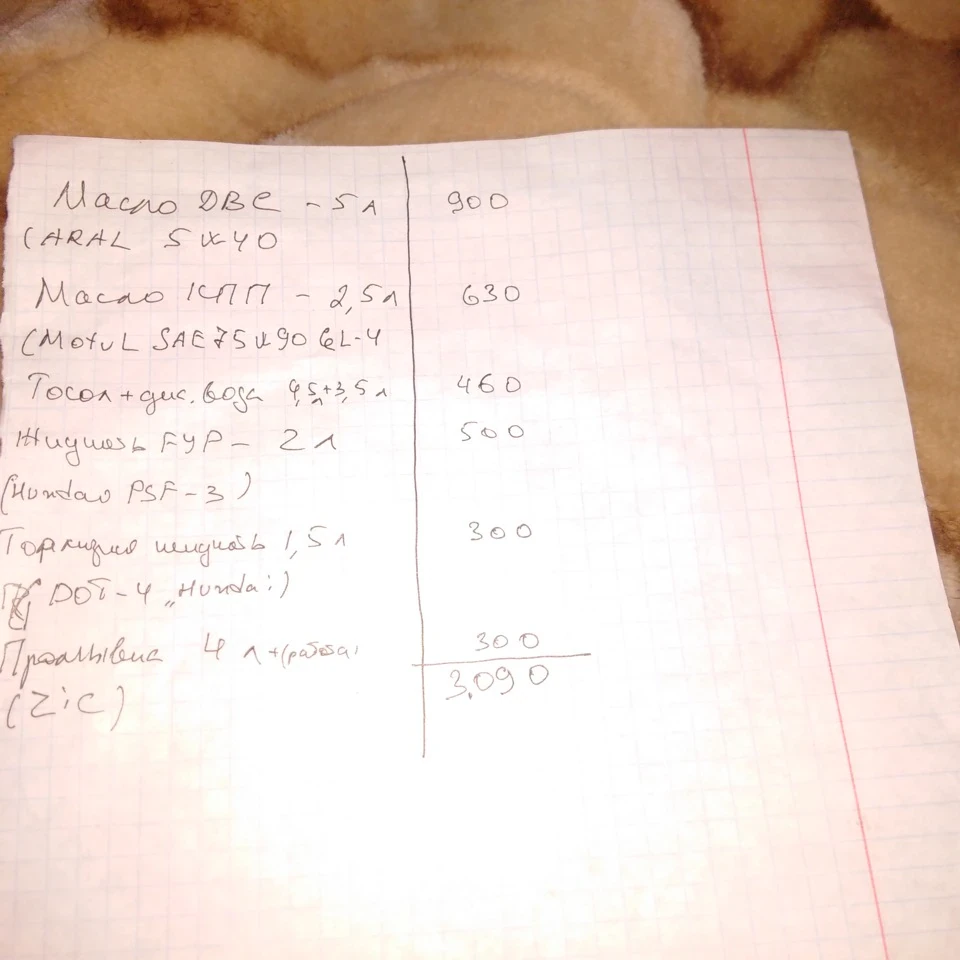 Масло ДВС - 5л 900
(ARAL 5W40
Масло КПП - 2,5л 630
(Motul SAE75W90 GL-4
Тосол + дис. вода 4,5л+3,5л 460
Жидкость ГУР - 2л 500
(Hundao PSF-3)
жидкость 1,5л 300
DOT-4 „Hundai)
Промывка 4л+(работа) 300
(Zic) 3.090